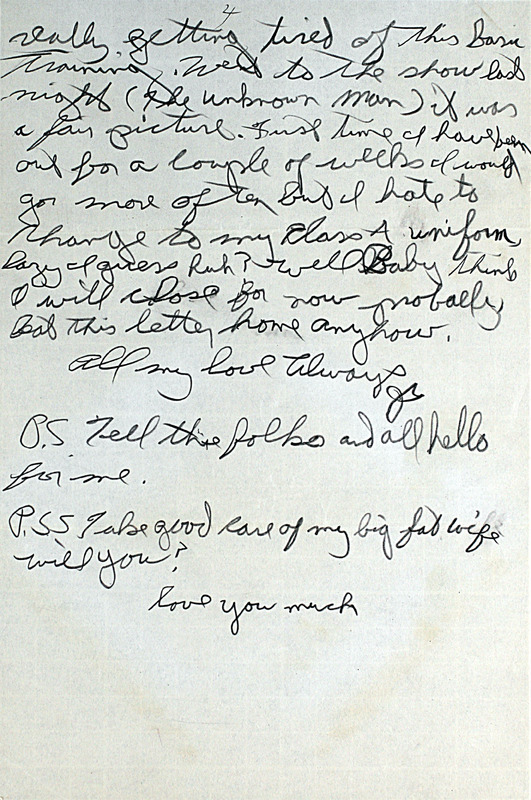 4
really getting tired of this Basic
Training. Went to the show last
night (the unknown man) it was
a fair picture. First time I have been
out for a couple of weeks I would
go more often but I hate to
change to my class A uniform,
lazy I guess huh? Well Baby think
I will close for now probally
beat this letter home anyhow.
All my love Always
P.S Tell the folks and all hello
for me.
P.SS Take good care of my big fat wife
will you?
love you much